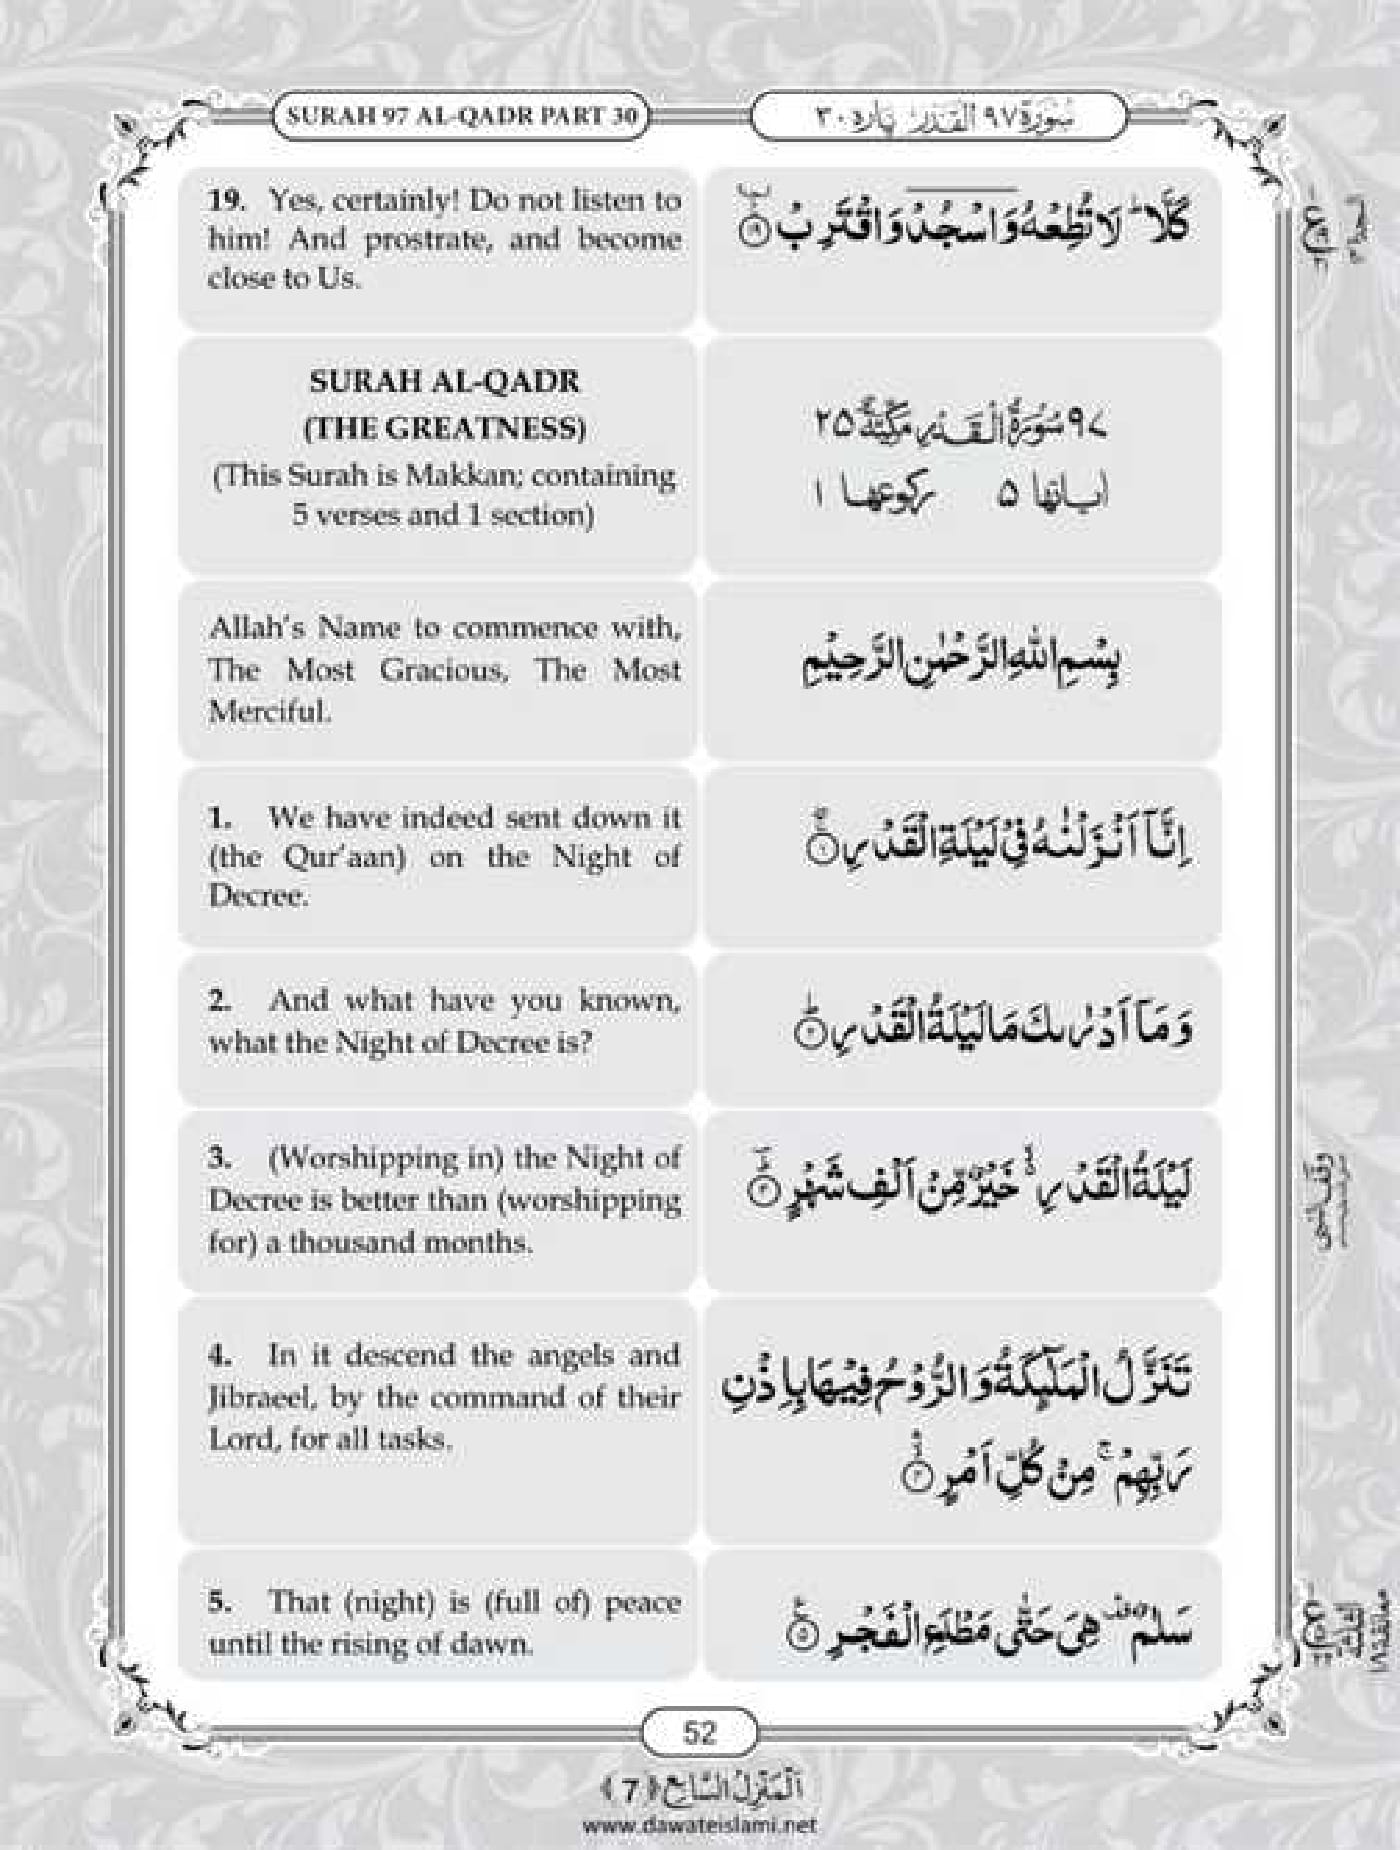 SURAH 97 AL-QADR PART 30
سُورَة ٩٧ القَدْر پاره ٣٠
19. Yes, certainly! Do not listen to
him! And prostrate, and become
close to Us.
كَلَّا ؕ لَا تُطِعْهُ وَاسْجُدْ وَاقْتَرِبْ ۝۱۹
SURAH AL-QADR
(THE GREATNESS)
(This Surah is Makkan; containing
5 verses and 1 section)
٩٧ سُوْرَةُ الْقَدْرِ مَكِّيَّةٌ ٢٥
اٰیاتها ۵ ركوعها ١
Allah's Name to commence with,
The Most Gracious, The Most
Merciful.
بِسْمِ اللهِ الرَّحْمٰنِ الرَّحِيْمِ
1. We have indeed sent down it
(the Qur'aan) on the Night of
Decree.
اِنَّاۤ اَنْزَلْنٰهُ فِیْ لَیْلَةِ الْقَدْرِ ۝۱
2. And what have you known,
what the Night of Decree is?
وَ مَاۤ اَدْرٰىكَ مَا لَیْلَةُ الْقَدْرِ ؕ۝۲
3. (Worshipping in) the Night of
Decree is better than (worshipping
for) a thousand months.
لَیْلَةُ الْقَدْرِ ۙ خَیْرٌ مِّنْ اَلْفِ شَهْرٍ ۝۳
4. In it descend the angels and
Jibraeel, by the command of their
Lord, for all tasks.
تَنَزَّلُ الْمَلٰٓىِٕكَةُ وَ الرُّوْحُ فِیْهَا بِاِذْنِ
رَبِّهِمْ ۚ مِنْ كُلِّ اَمْرٍ ۝۴
5. That (night) is (full of) peace
until the rising of dawn.
سَلٰمٌ هِیَ حَتّٰى مَطْلَعِ الْفَجْرِ ۝۵
52
اَلْمَنْزِلُ السَّابِع ﴿7﴾
www.dawateislami.net